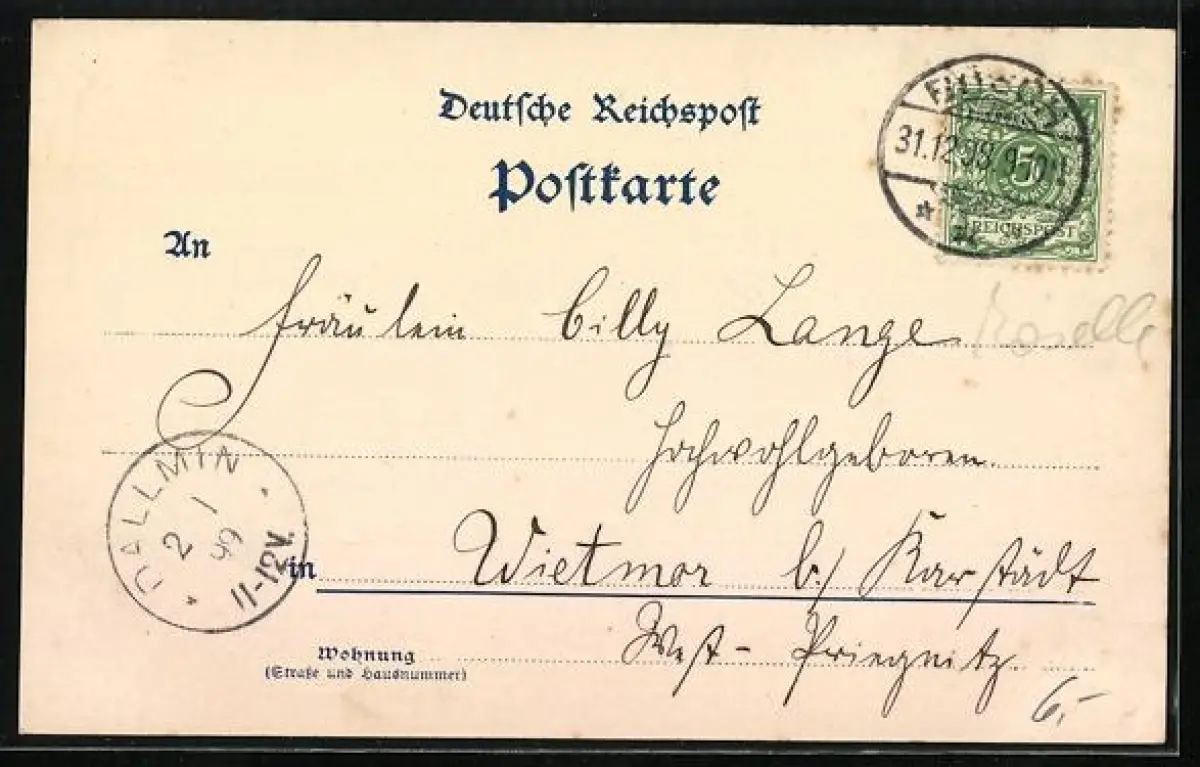 Deutsche Reichspost
Postkarte
31.12.98
5
PFENNIG
REICHSPOST
An
Fräulein Cilly Lange
Hochwohlgeboren.
DALLMIN
2 1
99
11-12V.
in Wietmar b/ Karstädt
Wohnung West-Priegnitz.
(Straße und Hausnummer)
6,-